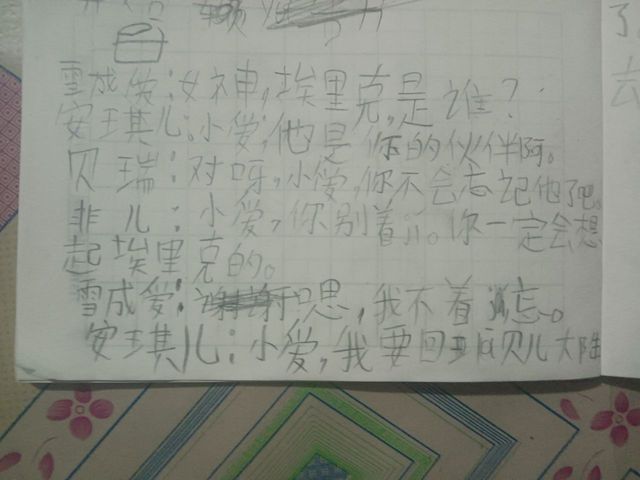 雪成爱:女神,埃里克,是谁?
安琪儿:小爱,他是你的伙伴阿。
贝瑞:对呀,小爱,你不会忘记他了吧。
非儿:小爱,你别着 。你一定会想
起埃里克的。
雪成爱: 恩,我不着 忘。
安琪儿:小爱,我要回 贝儿大陆
了
去